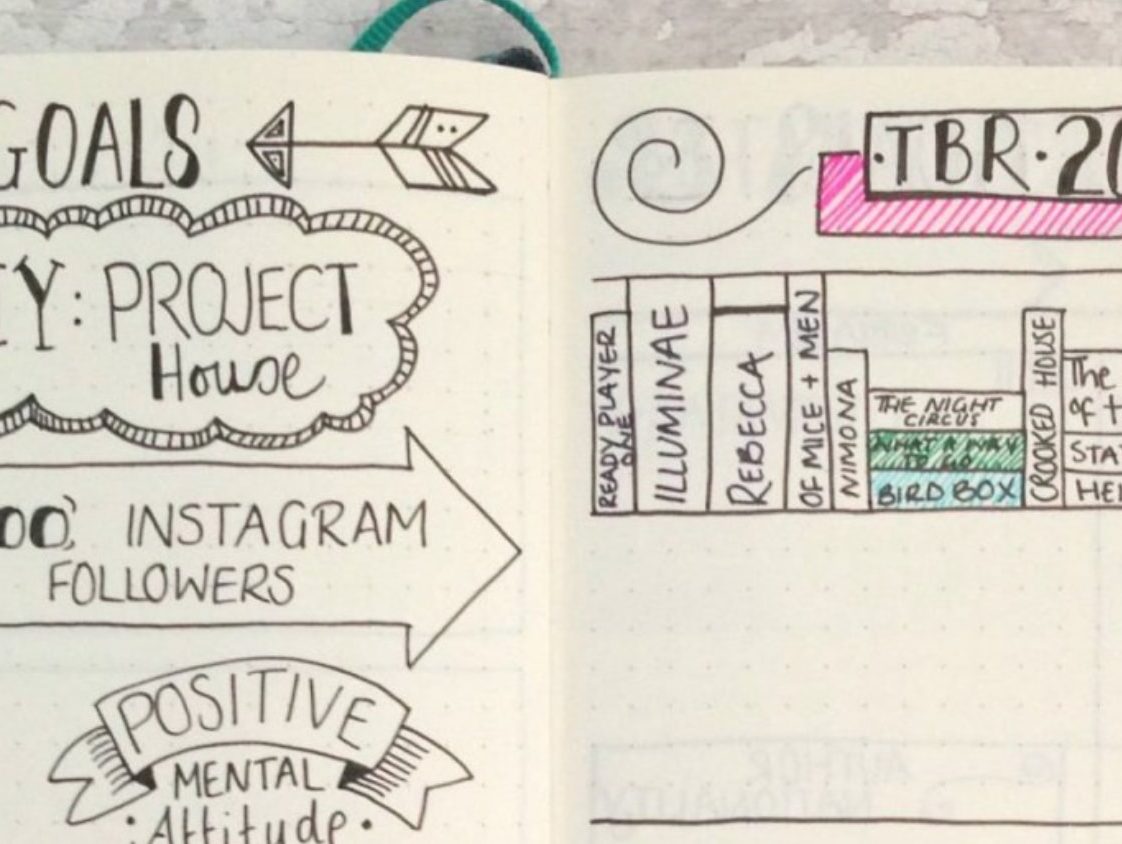 GOALS
IY: PROJECT
House
00' INSTAGRAM
FOLLOWERS
POSITIVE
MENTAL
·Attitude·
·TBR·20
READY PLAYER
ONE
ILLUMINAE
REBECCA
OF MICE + MEN
NIMONA
THE NIGHT
CIRCUS
WHAT A WAY
TO GO
BIRD BOX
CROOKED HOUSE
The
of t
STA
HE
AUTHOR
NATIONALITY